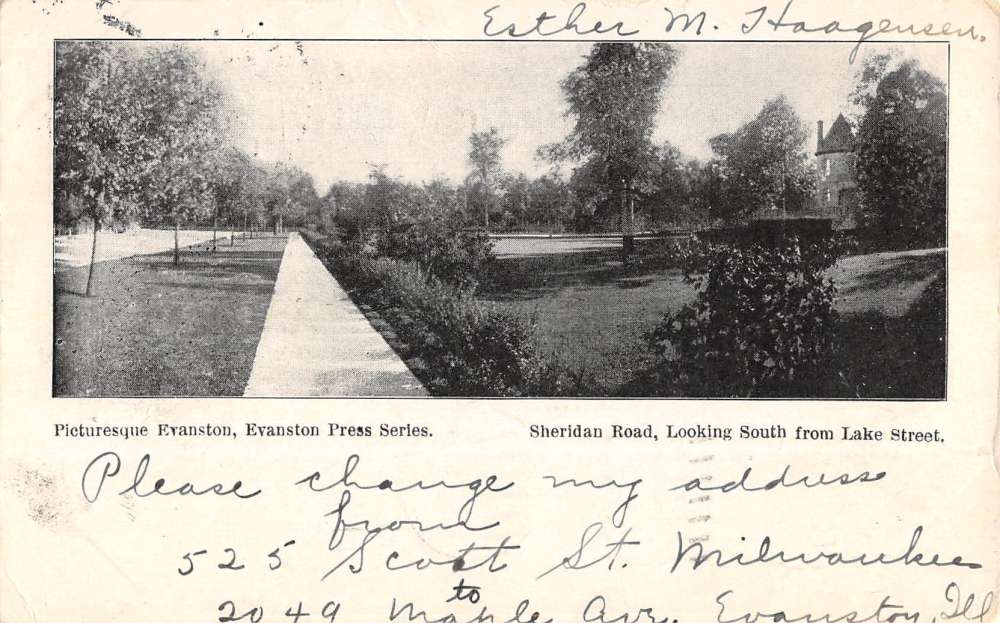 Esther M. Haagensen.
Picturesque Evanston, Evanston Press Series.
Sheridan Road, Looking South from Lake Street.
Please change my address
from
525 Scott St. Milwaukee
to
2049 Maple Ave. Evanston, Ill